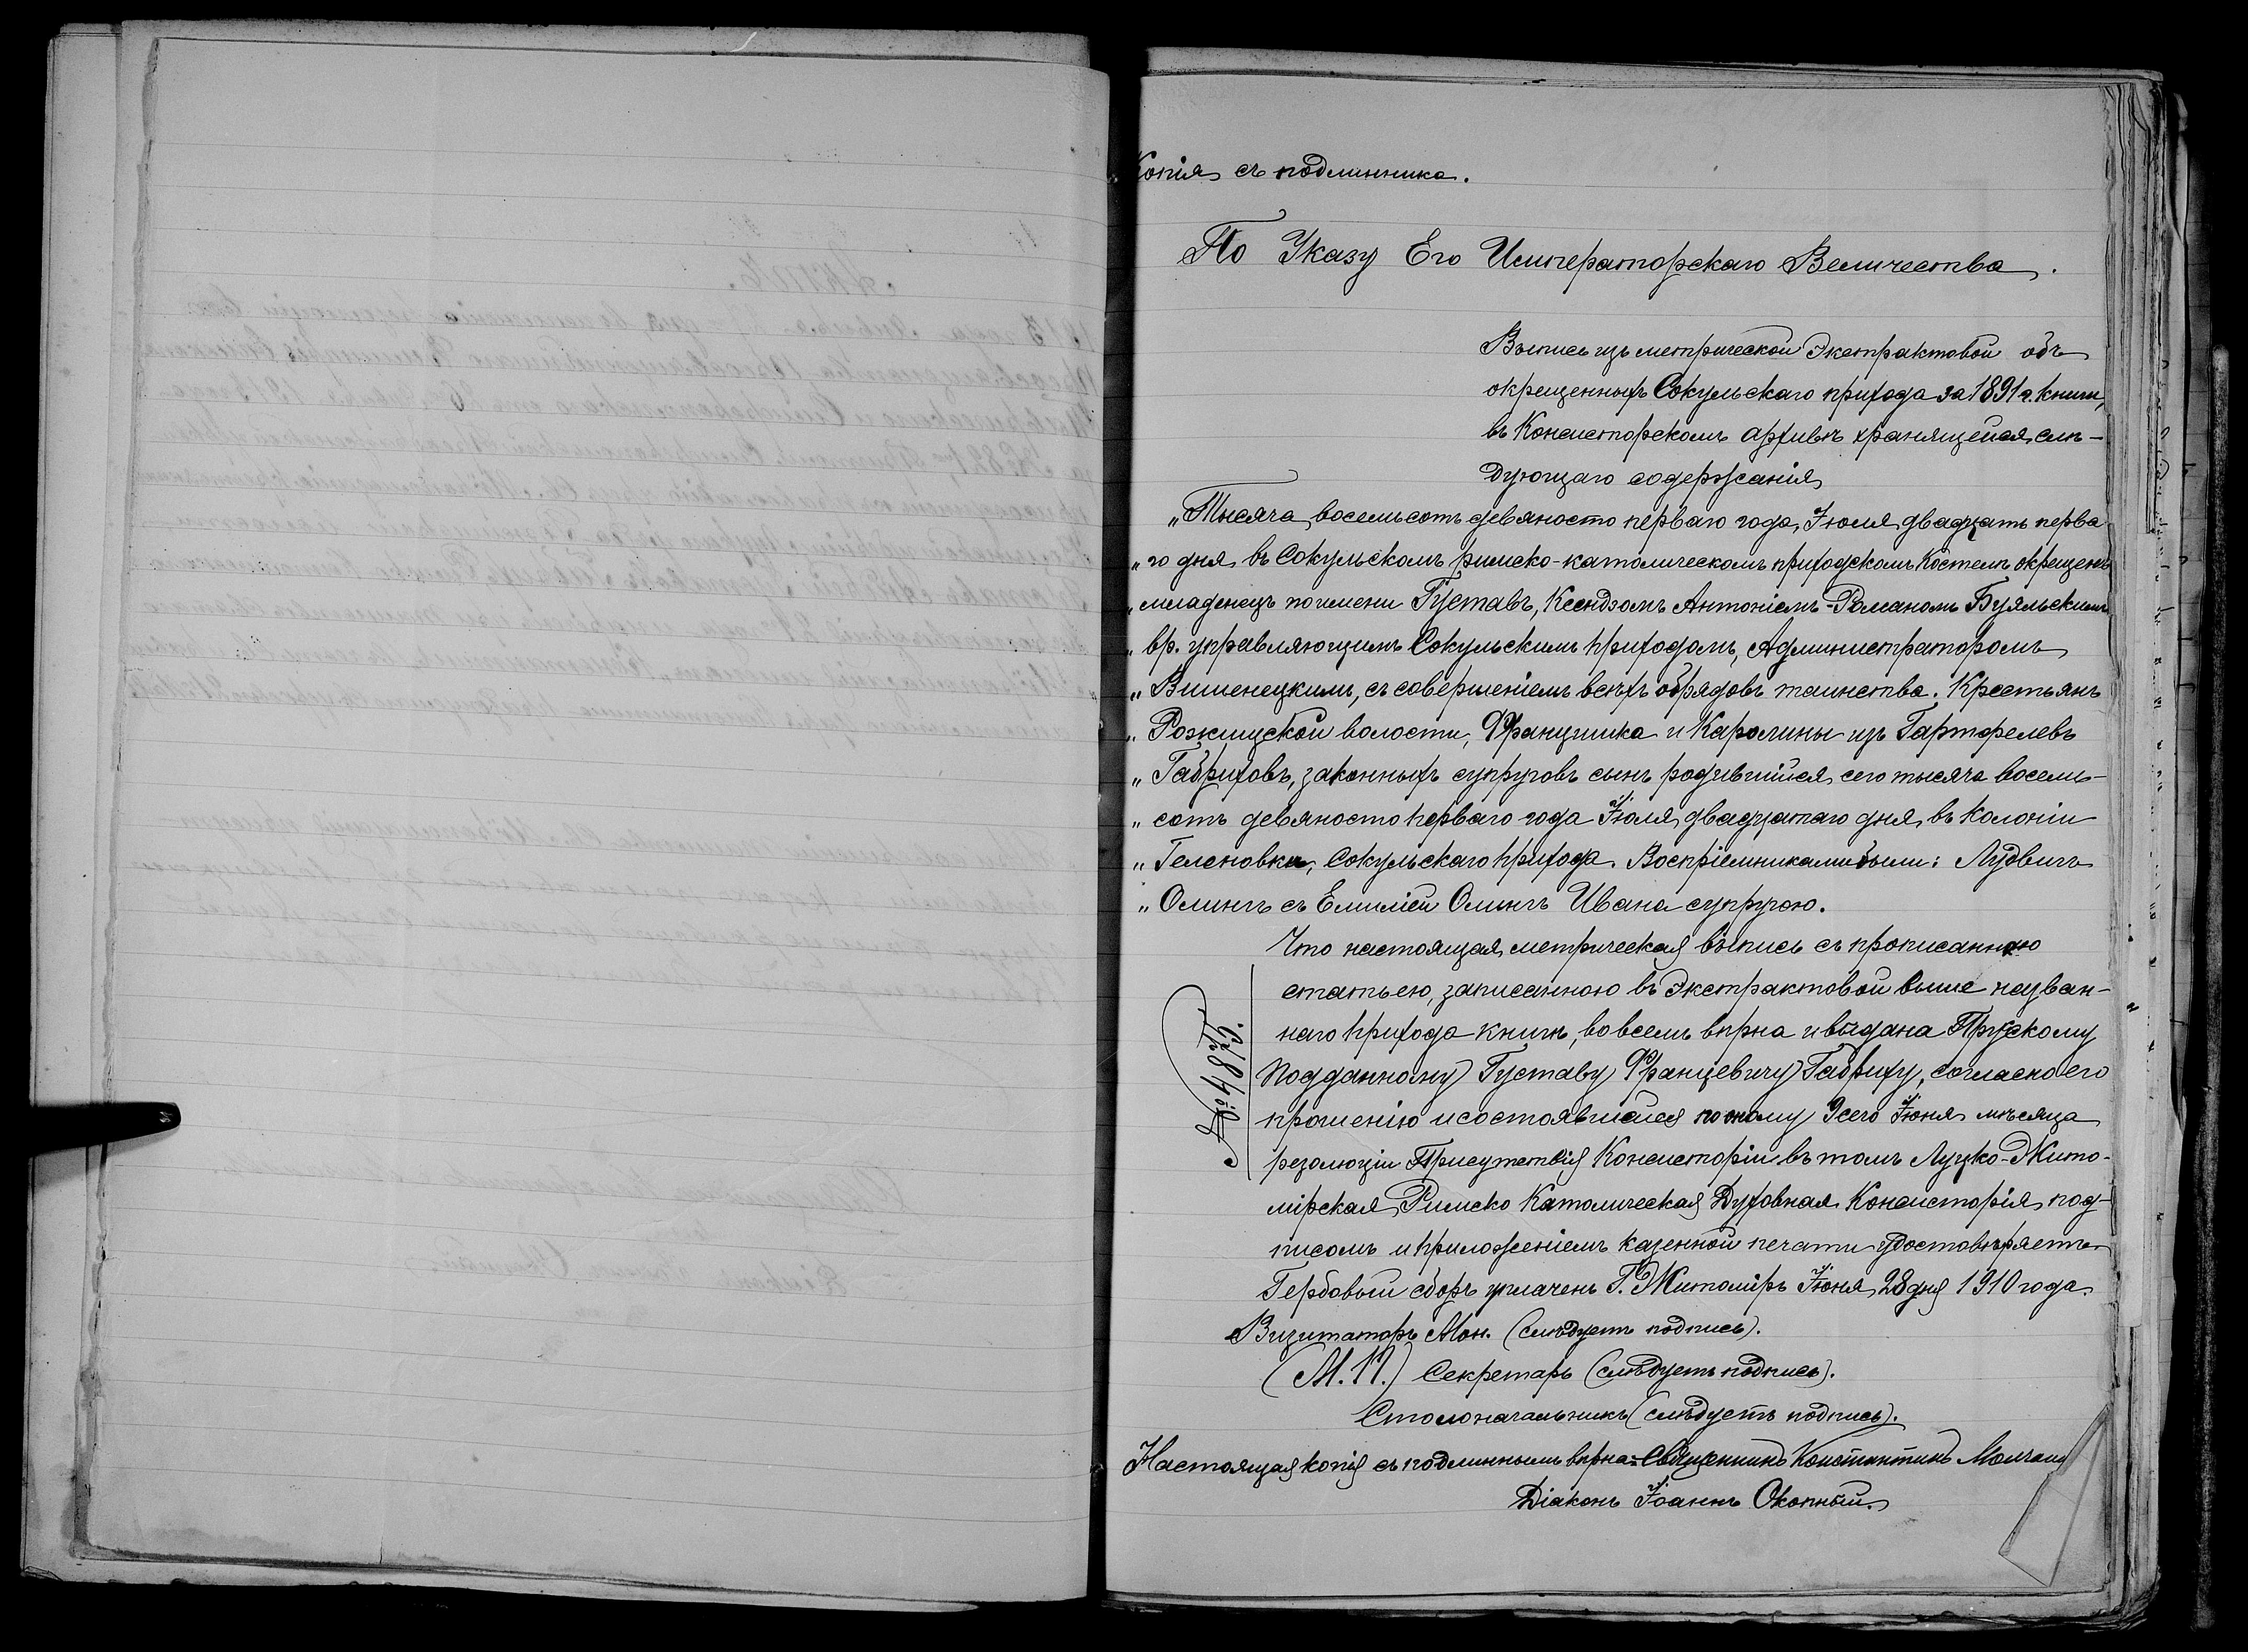 Копія съ подлинника.
По Указу Его Императорскаго Величества.
Выпись изъ метрической Экстрактовой объ
окрещенныхъ Сокульскаго прихода за 1891 г. книги,
въ Консисторскомъ архивѣ хранящейся, слѣ-
дующаго содержанія
„Тысяча восемьсотъ девяносто перваго года, Іюля двадцать перва
„го дня въ Сокульскомъ римско-католическомъ приходскомъ Костелѣ окрещенъ
„младенецъ по имени Густавъ, Ксендзомъ Антоніемъ-Романомъ Буяльскимъ
„вр. управляющимъ Сокульскимъ приходомъ, Администраторомъ
„Вишенецкимъ, съ совершеніемъ всѣхъ обрядовъ таинства. Крестьянъ
„Рожищской волости, Францишка и Каролины изъ Гартфелевъ
„Габриховъ, законныхъ супруговъ сынъ родившійся сего тысяча восемь-
„сотъ девяносто перваго года Іюля двадцатаго дня въ колоніи
„Геленовкѣ, Сокульскаго прихода. Воспріемниками были: Лудвигъ
„Олингъ съ Емиліей Олингъ Ивана супругою.
Что настоящая метрическая выпись съ прописанною
статьею, записанною въ Экстрактовой выше назван-
наго прихода книгѣ, во всемъ вѣрна и выдана Прускому
Подданному Густаву Францевичу Габриху, согласно его
прошенію и состоявшейся по оному 9 сего Іюня мѣсяца
резолюціи Присутствія Консисторіи въ томъ Луцко-Жито-
мірская Римско Католическая Духовная Консисторія под-
писомъ и приложеніемъ казенной печати удостовѣряетъ
Гербовый сборъ уплаченъ Г. Житоміръ Іюня 28 дня 1910 года.
Визитаторъ Мон. (слѣдуетъ подпись).
(М.П.) Секретарь (слѣдуетъ подпись).
Столоначальникъ (слѣдуетъ подпись).
Настоящая копія съ подлиннымъ вѣрна: Священникъ Константинъ
Діаконъ Іоаннъ Окопный.